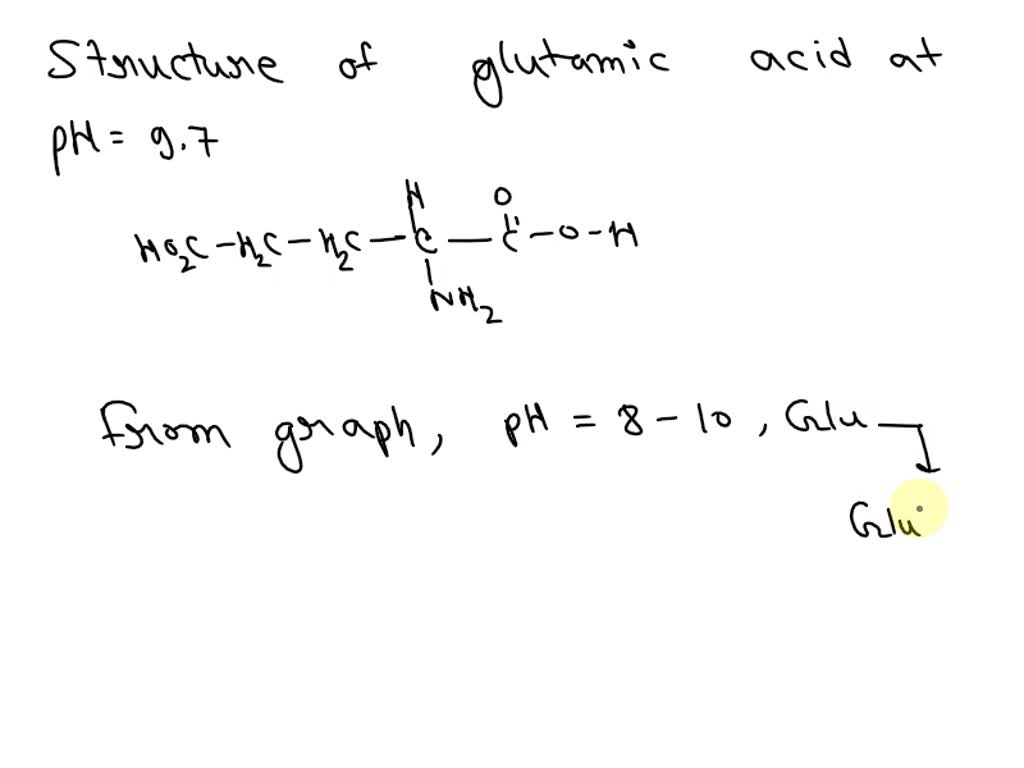 Structure of glutamic acid at
pH = 9.7
H O
HO2C - H2C - H2C - C - C - O - H
NH2
From graph, pH = 8 - 10, Glu
Glu